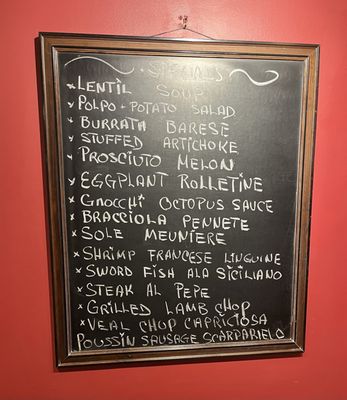 SPECIALS
LENTIL SOUP
POLPO + POTATO SALAD
BURRATA BARESE
STUFFED ARTICHOKE
PROSCIUTO MELON
EGGPLANT ROLLETINE
GNOCCHI OCTOPUS SAUCE
BRACCIOLA PENNETE
SOLE MEUNIERE
SHRIMP FRANCESE LINGUINE
SWORD FISH ALA SICILIANO
STEAK AL PEPE
GRILLED LAMB CHOP
VEAL CHOP CAPRICIOSA
POUSSIN SAUSAGE SCARPARIELO